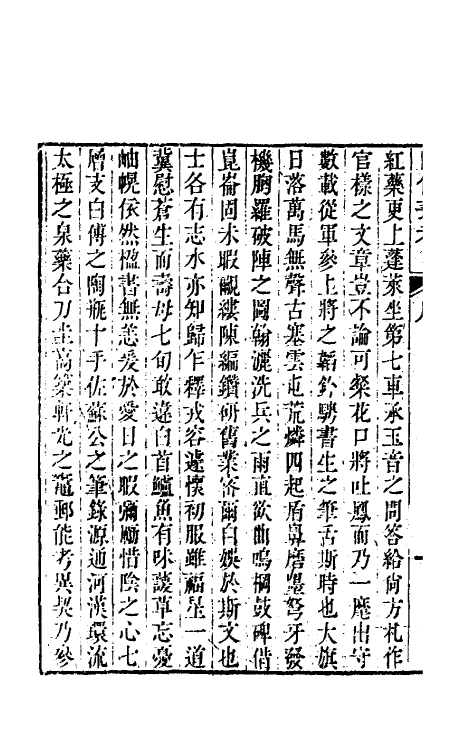 紅藥更上蓬萊坐第七車承玉音之問答給尙方札作
官樣之文章豈不論可粲花口將吐鳳而乃一麾出守
數載從軍參上將之韜鈐騁書生之筆舌斯時也大旗
日落萬馬無聲古塞雲屯荒燐四起盾鼻磨墨弩牙發
機胸羅破陣之圖翰灑洗兵之雨直欲曲鳴㭎鼓碑借
崑崙固未暇覼縷陳編鑽硏舊業客爾自娛於斯文也
士各有志水亦知歸乍釋戎容遽懷初服雖福星一道
冀慰蒼生而壽母七旬敢違白首鱸魚有味諼草忘憂
岫幌依然楹書無恙爰於愛日之暇彌勵惜陰之心七
層支白傅之陶瓶十手佐蘇公之筆錄源通河漢環流
太極之泉藥合刀圭高築軒光之竈郵能考異契乃參